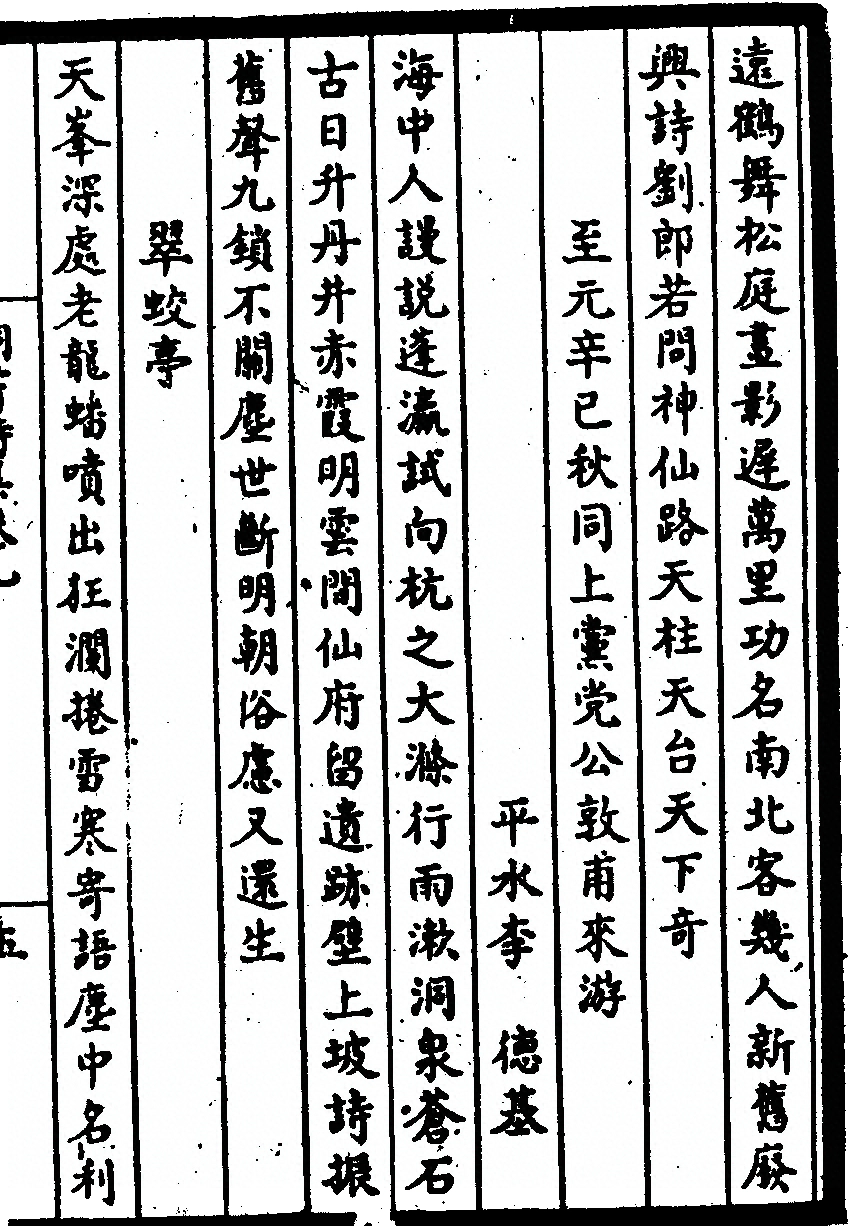 遠鶴舞松庭晝影遲萬里功名南北客幾人新舊廢
興詩劉郎若問神仙路天柱天台天下奇
至元辛巳秋同上黨党公敦甫來游
平水李　德基
海中人謾説蓬瀛試向杭之大滌行雨漱洞泉蒼石
古日升丹井赤霞明雲間仙府留遺跡壁上坡詩振
舊聲九鎖不關塵世斷明朝俗慮又還生
翠蛟亭
天峯深處老龍蟠噴出狂瀾捲雪寒寄語塵中名利